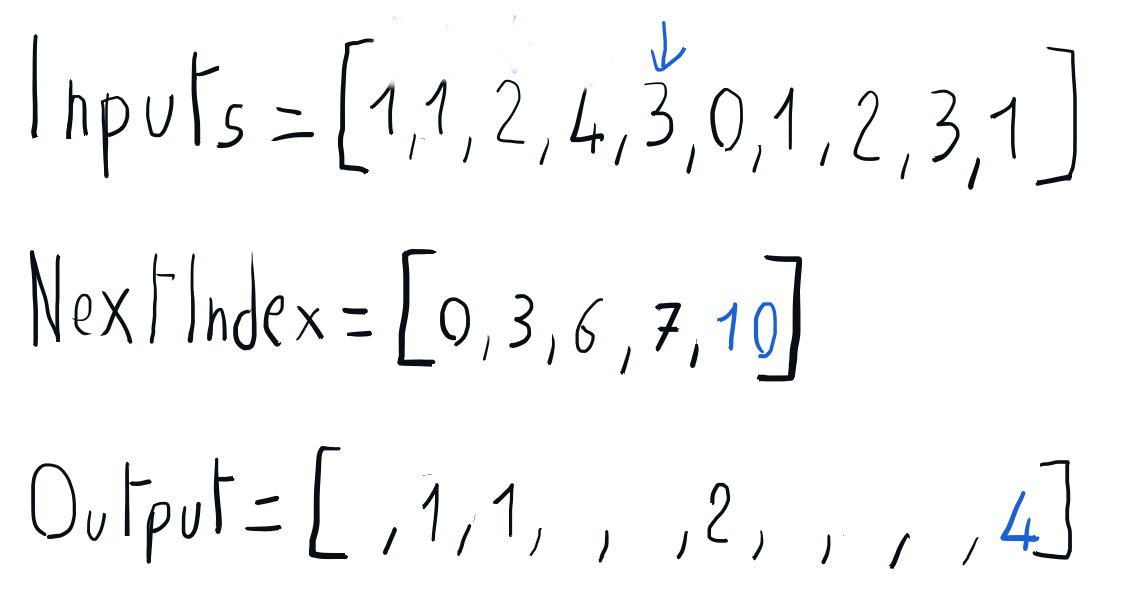 Inputs = [1,1,2,4,3,0,1,2,3,1]
NextIndex = [0,3,6,7,10]
Output = [ ,1,1, , ,2, , , ,4]